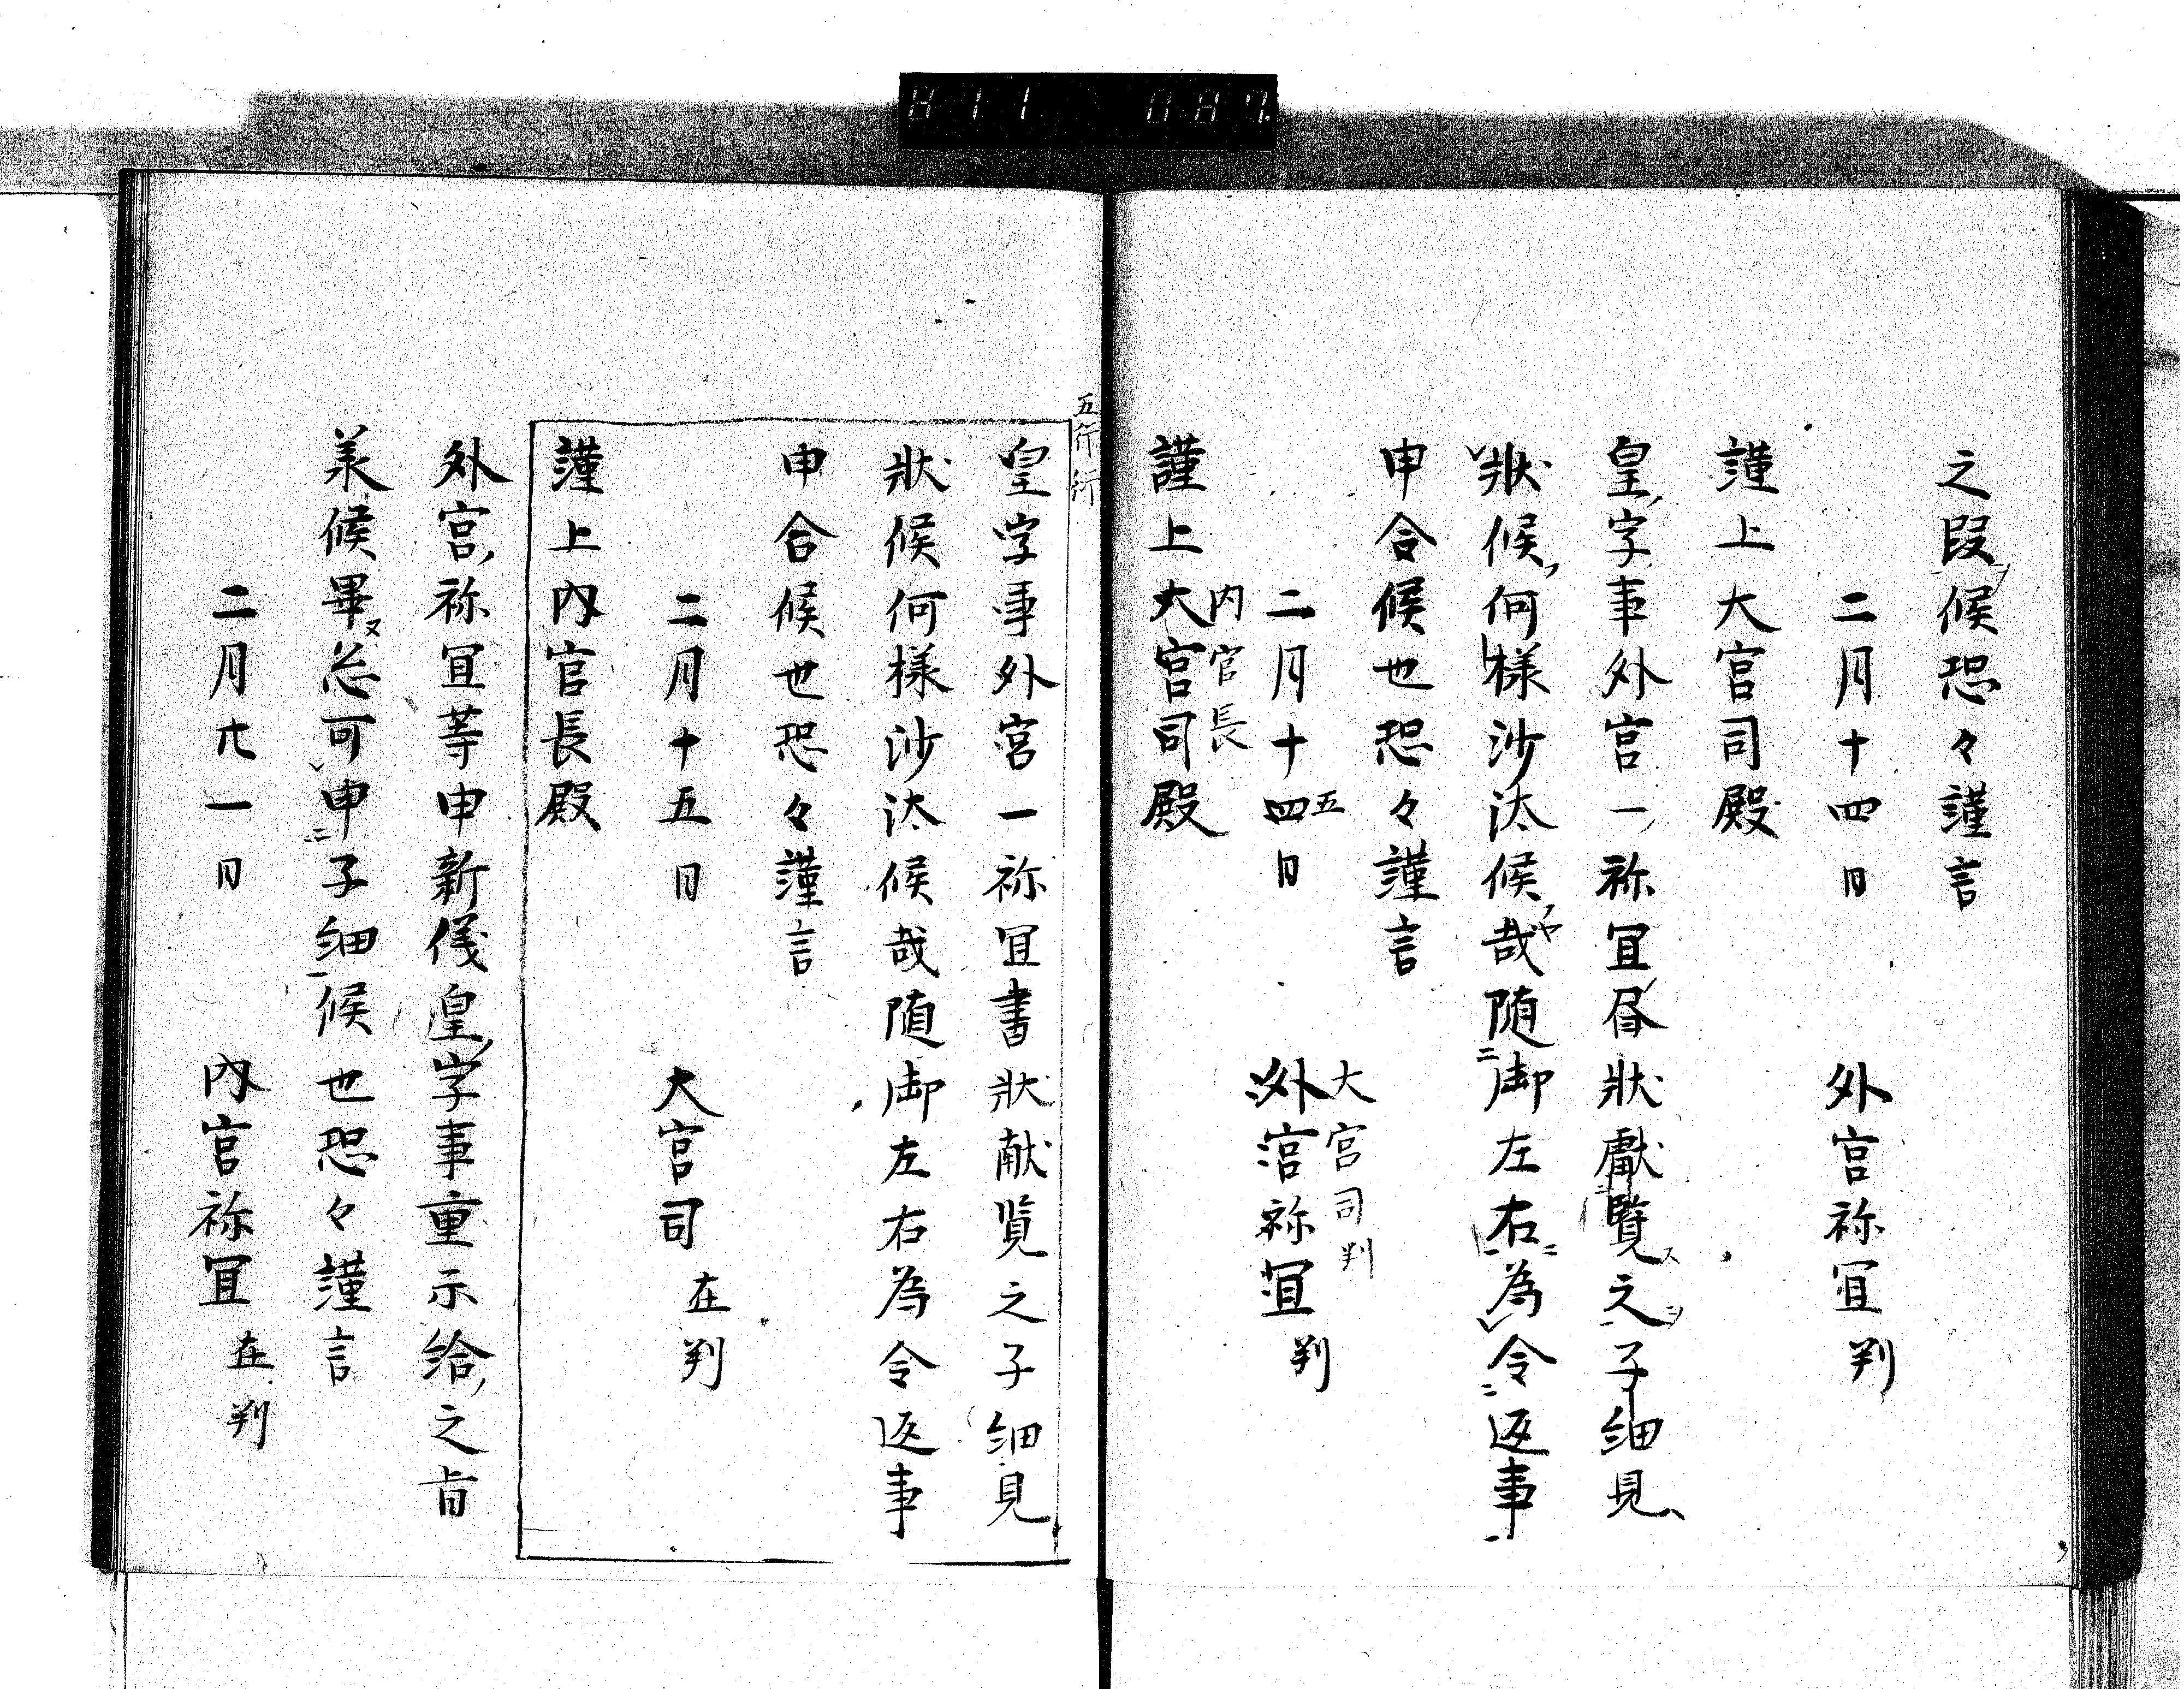 之段候恐々謹言
二月十四日　外宮祢宜判
謹上大宮司殿
皇字事外宮一祢宜昼状獻覧之子細見
状候何様沙汰候哉随御左右為令返事
申合候也恐々謹言
大宮司判
五
二月十四日　外宮祢宜判
内宮長
謹上大宮司殿
五行行
皇字事外宮一祢宜書状献覧之子細見
状候何様沙汰候哉随御左右為令返事
申合候也恐々謹言
二月十五日　大宮司在判
謹上内宮長殿
外宮祢宜等申新儀皇字事重示給之旨
承候畢忩可申子細候也恐々謹言
二月廿一日　内宮祢宜在判